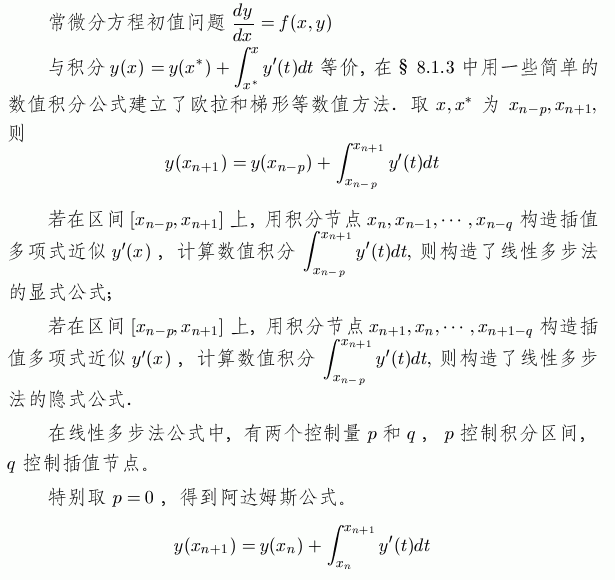 常微分方程初值问题 dy/dx = f(x, y)
与积分 y(x) = y(x*) + ∫_{x*}^{x} y′(t)dt 等价, 在 § 8.1.3 中用一些简单的
数值积分公式建立了欧拉和梯形等数值方法. 取 x, x* 为 x_{n−p}, x_{n+1},
则
y(x_{n+1}) = y(x_{n−p}) + ∫_{x_{n−p}}^{x_{n+1}} y′(t)dt
若在区间 [x_{n−p}, x_{n+1}] 上, 用积分节点 x_n, x_{n−1}, ⋯, x_{n−q} 构造插值
多项式近似 y′(x) , 计算数值积分 ∫_{x_{n−p}}^{x_{n+1}} y′(t)dt, 则构造了线性多步法
的显式公式;
若在区间 [x_{n−p}, x_{n+1}] 上, 用积分节点 x_{n+1}, x_n, ⋯, x_{n+1−q} 构造插
值多项式近似 y′(x) , 计算数值积分 ∫_{x_{n−p}}^{x_{n+1}} y′(t)dt, 则构造了线性多步
法的隐式公式.
在线性多步法公式中, 有两个控制量 p 和 q , p 控制积分区间,
q 控制插值节点。
特别取 p = 0 , 得到阿达姆斯公式。
y(x_{n+1}) = y(x_n) + ∫_{x_n}^{x_{n+1}} y′(t)dt